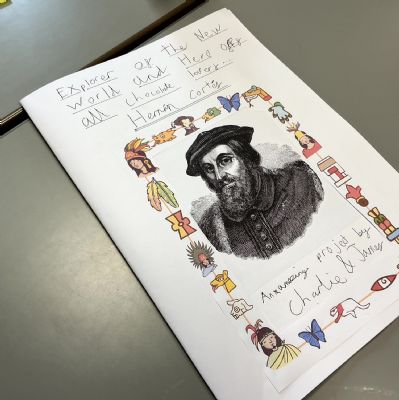 Explorer of the New
World and Hero of
all chocolate lovers...
Hernán Cortés
Project by
Charlie & James